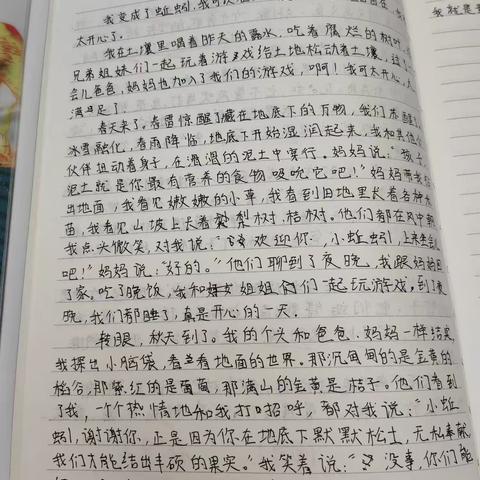 我变成了蚯蚓，我可以
太开心了。
我在土壤里喝着昨天的露水，吃着腐烂的树叶，
兄弟姐妹们一起玩着游戏给土地松动着土壤，这
会儿爸爸，妈妈也加入了我们的游戏，啊！我可太开心，
满足了！
春天来了。春雷惊醒了藏在地底下的万物，我们苏醒
冰雪融化，春雨降临，地底下开始湿润起来，我和其他
伙伴扭动着身子，在湿湿的泥土中穿行。妈妈说：“孩子，
泥土就是你最有营养的食物吸吮它吧！”妈妈带我
出地面，我看见嫩嫩的小草，我看到田地里长着各种
苗，我看见山坡上长着梨树，桔树。他们都在风中朝
我点头微笑，对我说：“欢迎你，小蚯蚓，上来坐会儿
吧！”妈妈说：“好的。”他们聊到了夜晚，我跟妈妈回
了家。吃了晚饭，我和姐姐们一起玩游戏，到了夜
晚，我们都睡了，真是开心的一天。
转眼，秋天到了。我的个头和爸爸、妈妈一样结实，
我探出小脑袋，看着地面的世界。那沉甸甸的是金黄的
稻谷，那紫红的是葡萄，那满山的金黄是桔子。他们看到
了我，一个个热情地和我打招呼，都对我说：“小蚯
蚓，谢谢你，正是因为你在地底下默默松土，无私奉献，
我们才能结出丰硕的果实。”我笑着说：“没事，你们能
我就是